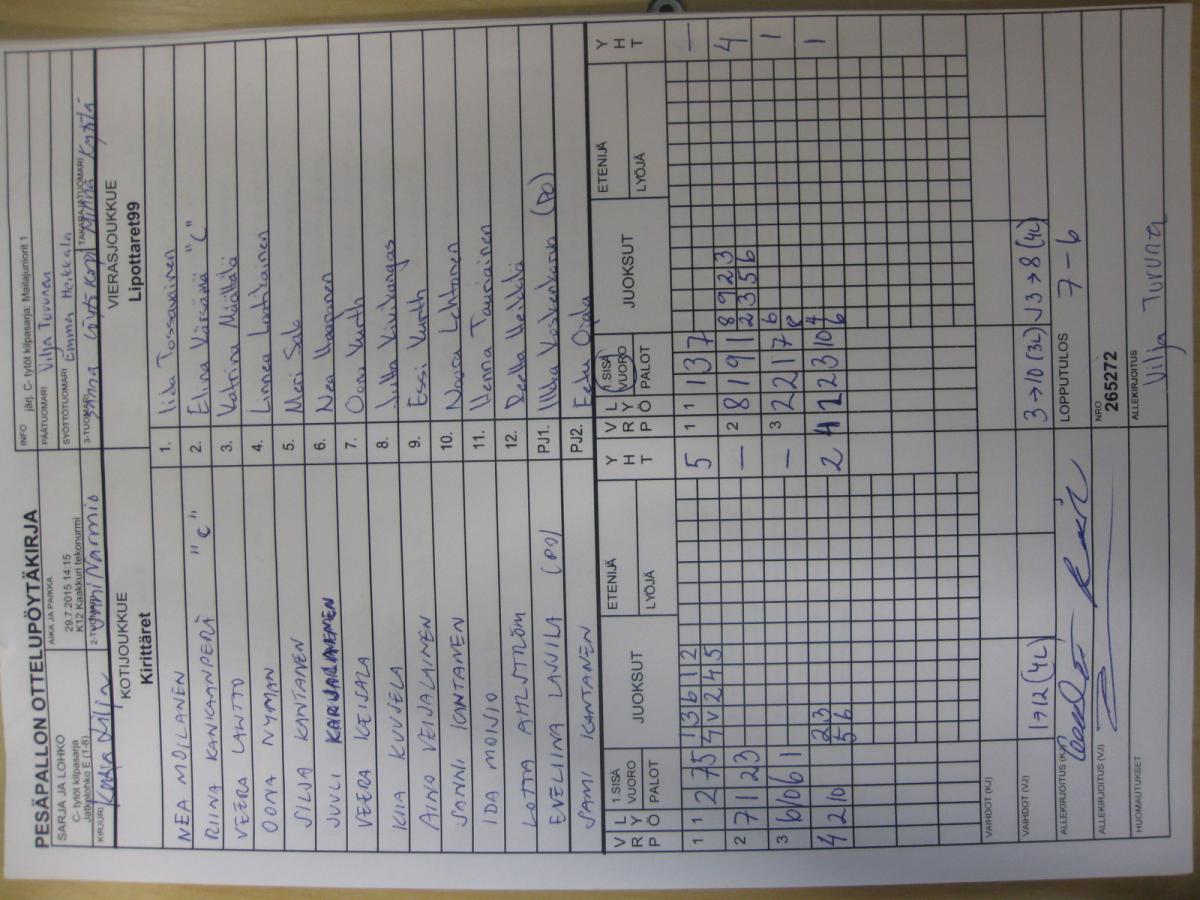 PESÄPALLON OTTELUPÖYTÄKIRJA
SARJA JA LOHKO
C- tytöt kilpasarja
Jatkolohko E (1-8)
AIKA JA PAIKKA
29.7.2015 14:15
K12 Kaakkuri tekonurmi
INFO järj. C- tytöt kilpasarja: Mailajuniorit 1
PÄÄTUOMARI Vilja Turunen
SYÖTTÖTUOMARI Emma Heikkala
KIRJURI
2-TUOMARI
3-TUOMARI
TAKARAJATUOMARI
KOTIJOUKKUE
Kirittäret
VIERASJOUKKUE
Lipottaret99
NEA MOILANEN 1. Iida Tossavainen
RIINA KANKAANPERÄ "C" 2. Elina Värsämä "C"
VEERA LAHTO 3. Katriina Määttälä
OONA NYMAN 4. Linnea Lantikainen
SILJA KANTANEN 5. Meri Salo
JUULI KARJALAINEN 6. Nea Haaranen
VEERA KEISALA 7. Oona Kurth
KIIA KUVELA 8. Jutta Kivikangas
AINO VEIJALAINEN 9. Essi Kurth
SANNI KANTANEN 10. Noora Lehtonen
IDA MONIO 11. Henna Tauriainen
LOTTA AHLSTRÖM 12. Reetta Heikkilä
EVELIINA LASSILA (PJ) PJ1. Ilkka Koskenkorva
SAMI KANTANEN PJ2. Eetu Ojala
V R P L Y Ö 1.SISÄ VUORO PALOT JUOKSUT ETENIJÄ LYÖJÄ Y H T
V R P L Y Ö 1.SISÄ VUORO PALOT JUOKSUT ETENIJÄ LYÖJÄ Y H T
1 1 2 7 5 1 3 6 12 5 1 1 1 3 7 –
4 V 2 4 5
2 7 1 2 3 – 2 8 1 9 1 8 9 2 3 4
2 3 5 6
3 – 3 2 2 1 7 6 1
8
4 2 10 6 2 3 2 4 2 2 3 10 4 1
5 6 6
VAIHDOT (KJ)
VAIHDOT (VJ) 1→12 (4L) 3→10 (3L) J3→8 (4L)
ALLEKIRJOITUS (KJ)
LOPPUTULOS 7 – 6
ALLEKIRJOITUS (VJ)
NRO
265272
HUOMAUTUKSET
ALLEKIRJOITUS
Vilja Turunen